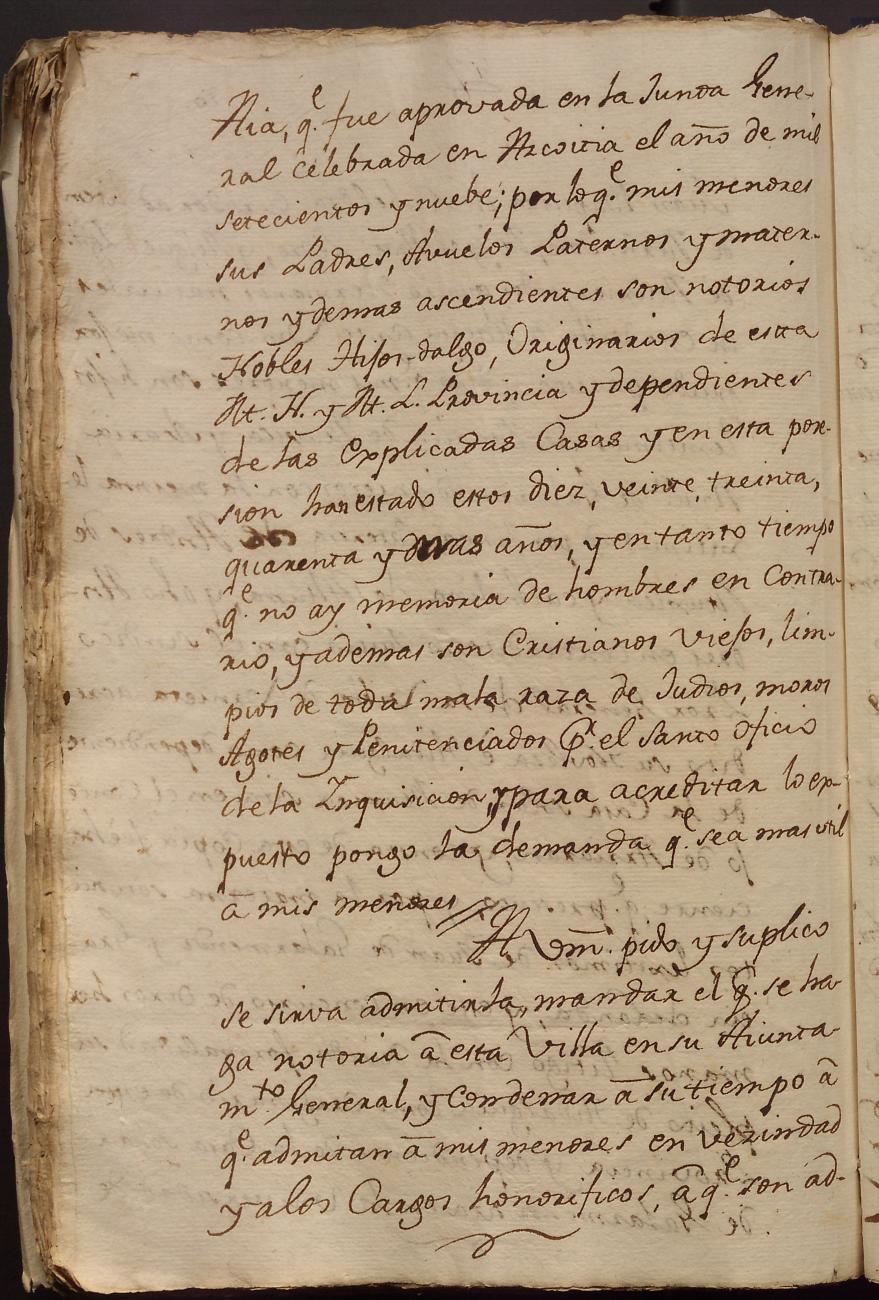 Aia, q.e fue aprovada en la Junta Gene-
ral celebrada en Azcoitia el año de mil
setecientos y nuebe; por lo q.e mis menores
sus Padres, Avuelos Paternos y mater-
nos y demas ascendientes son notorios
Nobles Hijos-dalgo, Originarios de esta
M. N. y M. L. Provincia y dependientes
de las explicadas Casas y en esta pose-
sion han estado estos diez, veinte, treinta,
quarenta y mas años, y en tanto tiempo
q.e no ay memoria de hombres en contra-
rio, y ademas son Cristianos viejos, lim-
pios de toda mala raza de Judios, moros
Agotes y Penitenciados p.r el Santo oficio
de la Inquisicion, y para acreditar lo ex-
puesto pongo la demanda q.e sea mas util
â mis menores //
A Vm. pido y suplico
se sirva admitirla, mandar el q. se ha-
ga notoria â esta Villa en su Aiunta-
m.to General, y condenar â su tiempo â
q.e admitan â mis menores en vezindad
y alos Cargos honorificos, â q.e son ad-